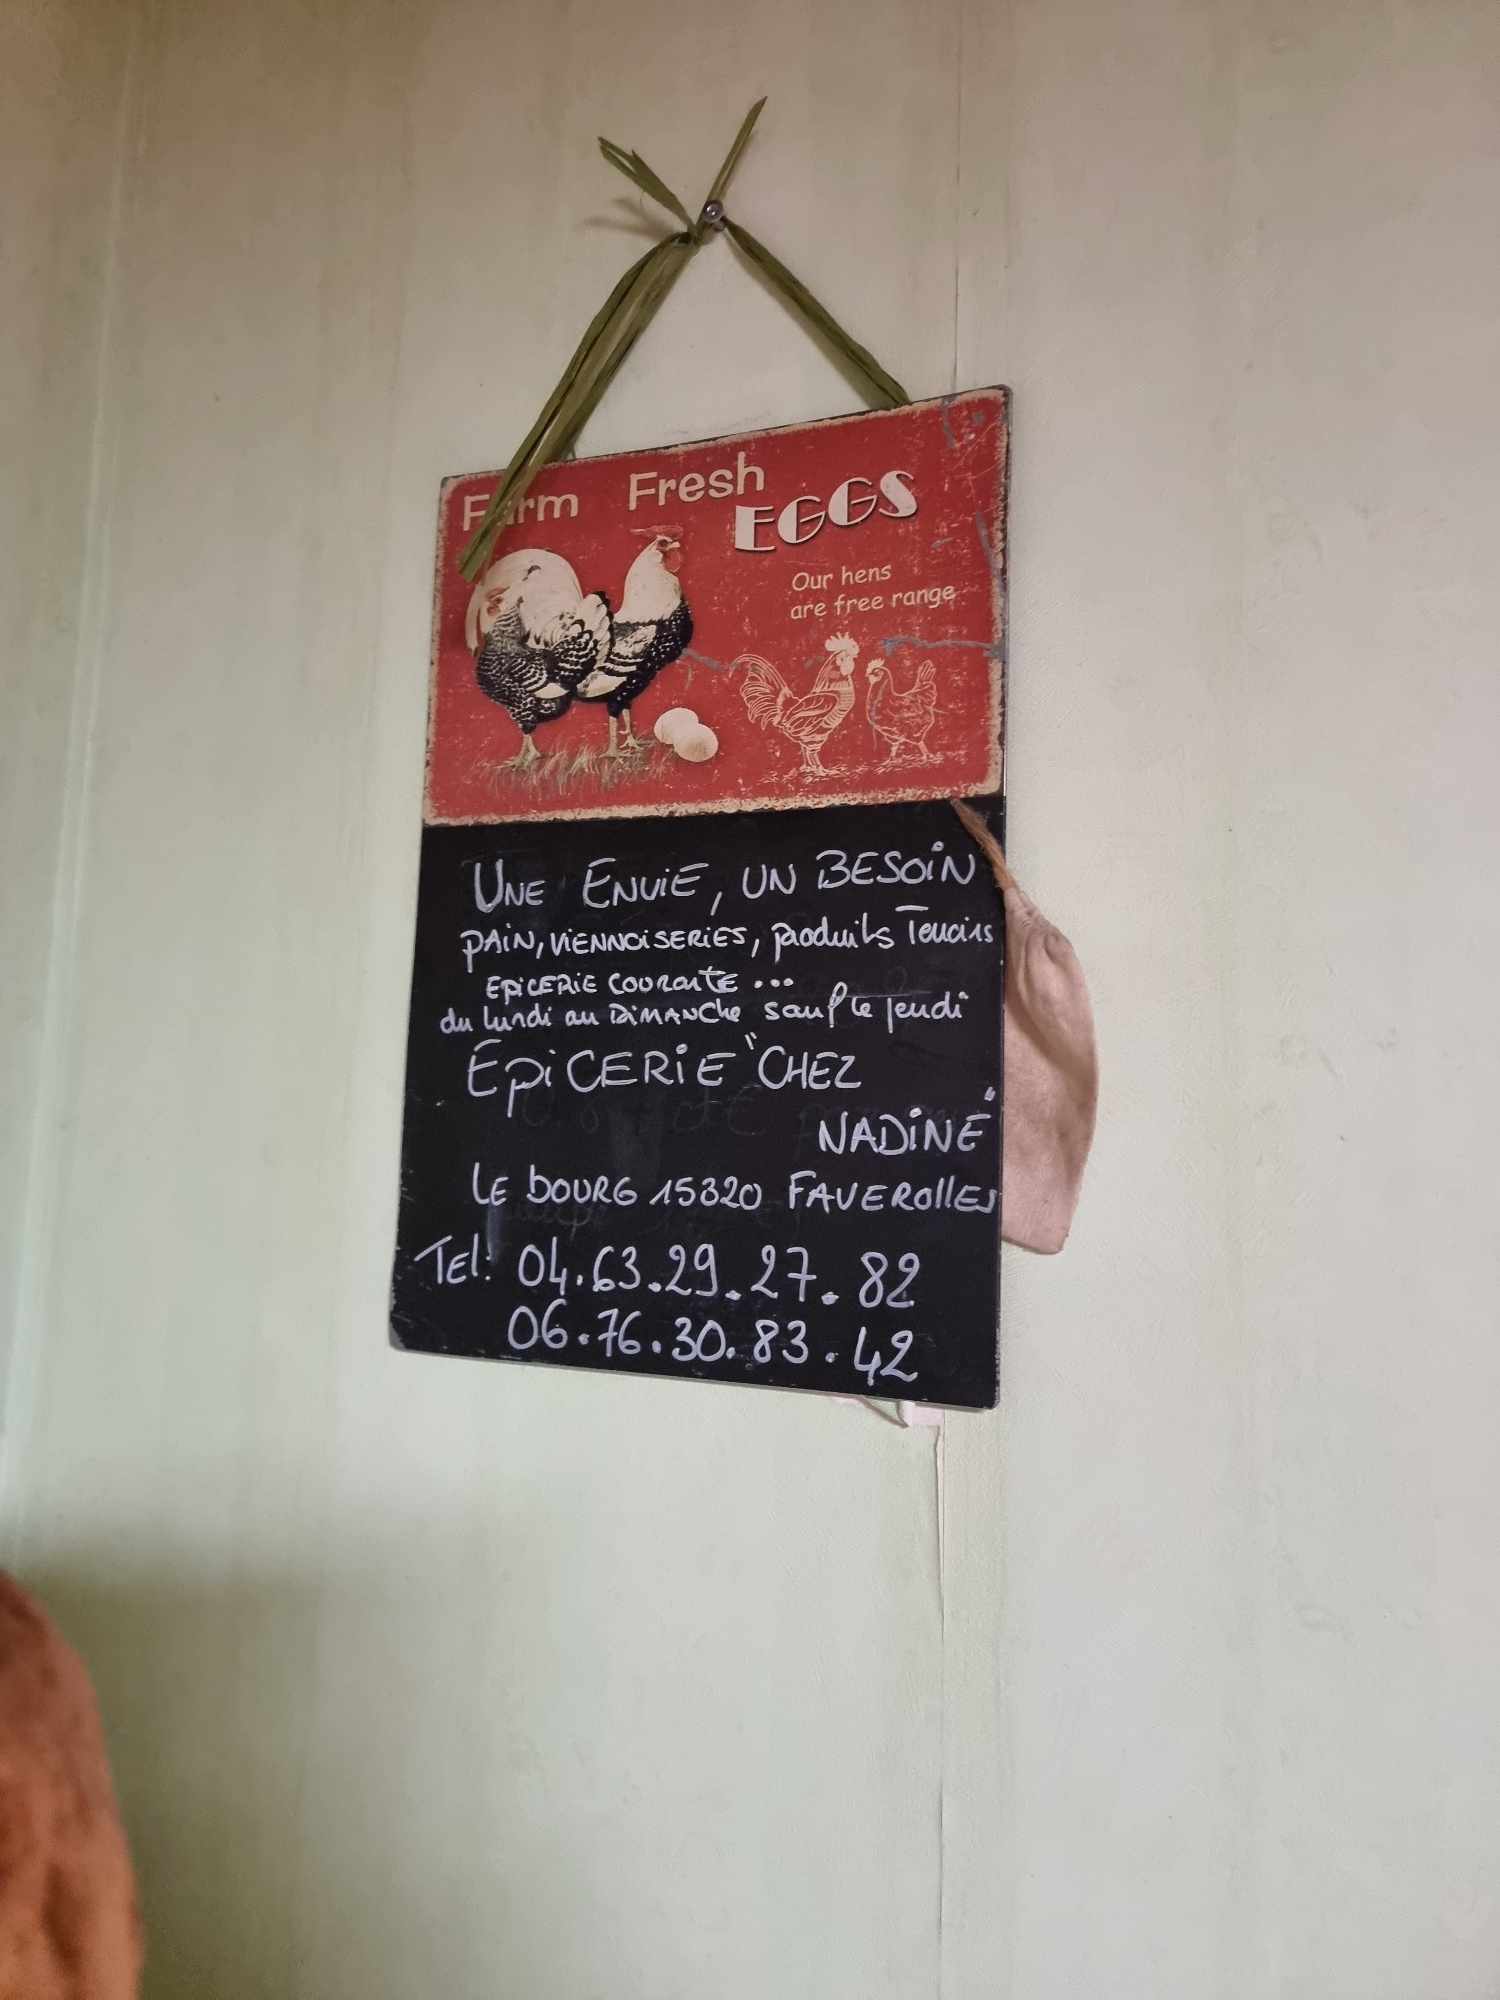 Farm Fresh
EGGS
Our hens
are free range
UNE ENVIE, UN BESOIN
PAIN, VIENNOISERIES, produits Terroirs
EPICERIE COURANTE ...
du lundi au DIMANCHE sauf le jeudi
EPICERIE "CHEZ
NADINE"
LE BOURG 15320 FAVEROLLES
Tel: 04.63.29.27.82
06.76.30.83.42